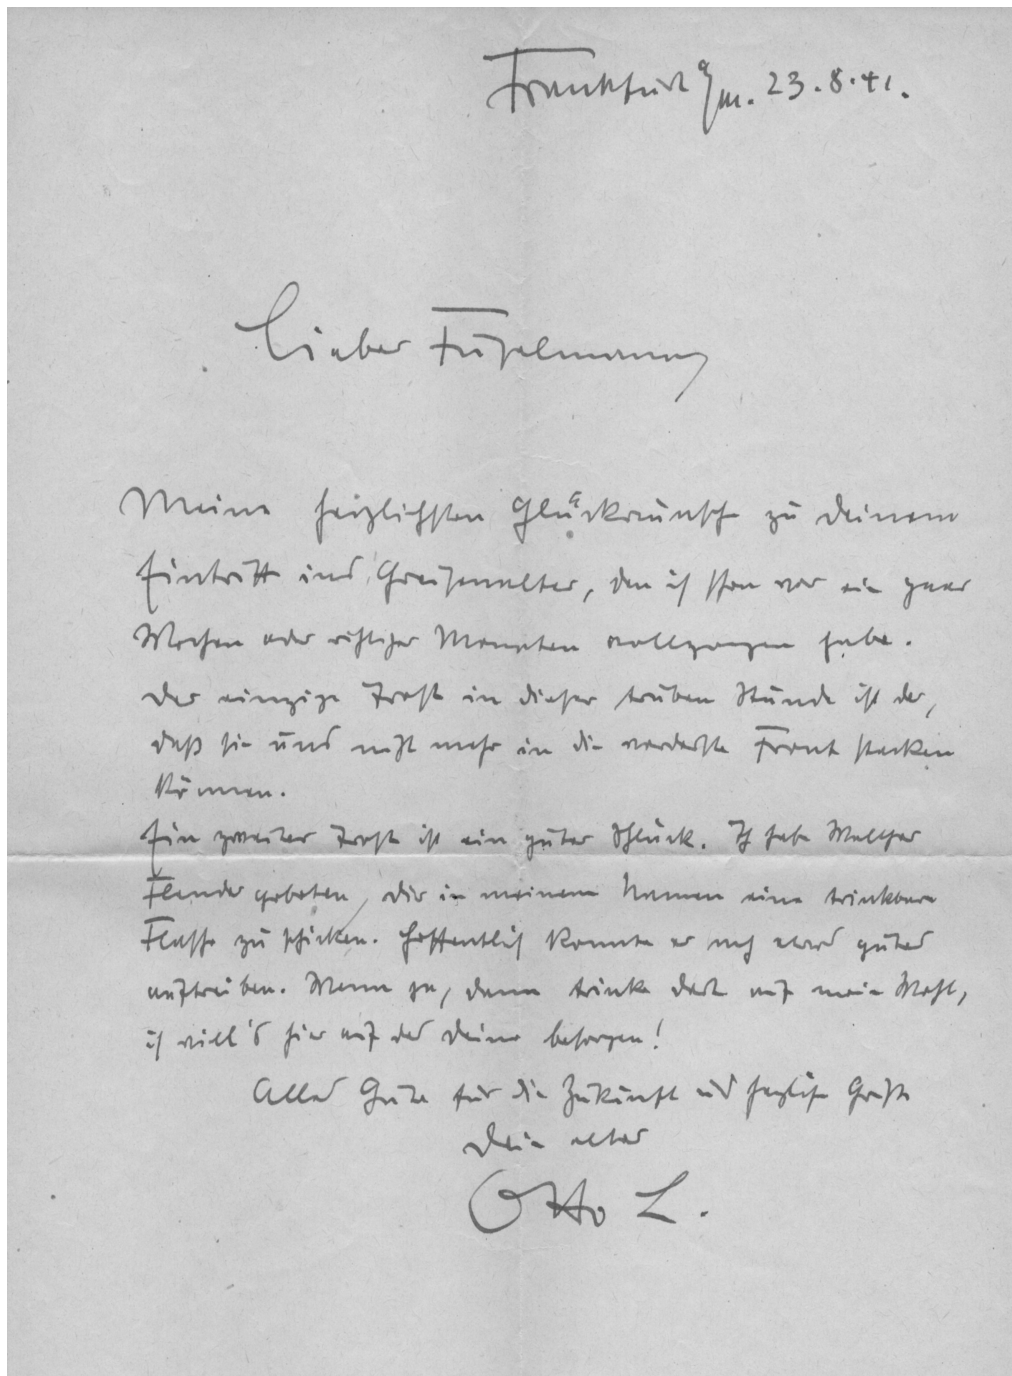 Frankfurt a/m. 23.8.41.
Lieber
Meine herzlichsten Glückwünsche zu Deinem
Eintritt ins Greisenalter, den ich schon vor ein paar
Wochen oder richtiger Monaten vollzogen habe.
Der einzige Trost in dieser trüben Stunde ist der,
daß sie uns nicht mehr in die vorderste Front stecken
können.
Ein zweiter Trost ist ein guter Schluck. Ich habe Walther
Flender gebeten, Dir in meinem Namen eine trinkbare
Flasche zu schicken. Hoffentlich konnte er noch etwas gutes
auftreiben. Wenn ja, dann trinke dort auf mein Wohl,
ich will's hier auf das Deine besorgen!
Alles Gute für die Zukunft und herzliche Grüße
Dein alter
Otto L.